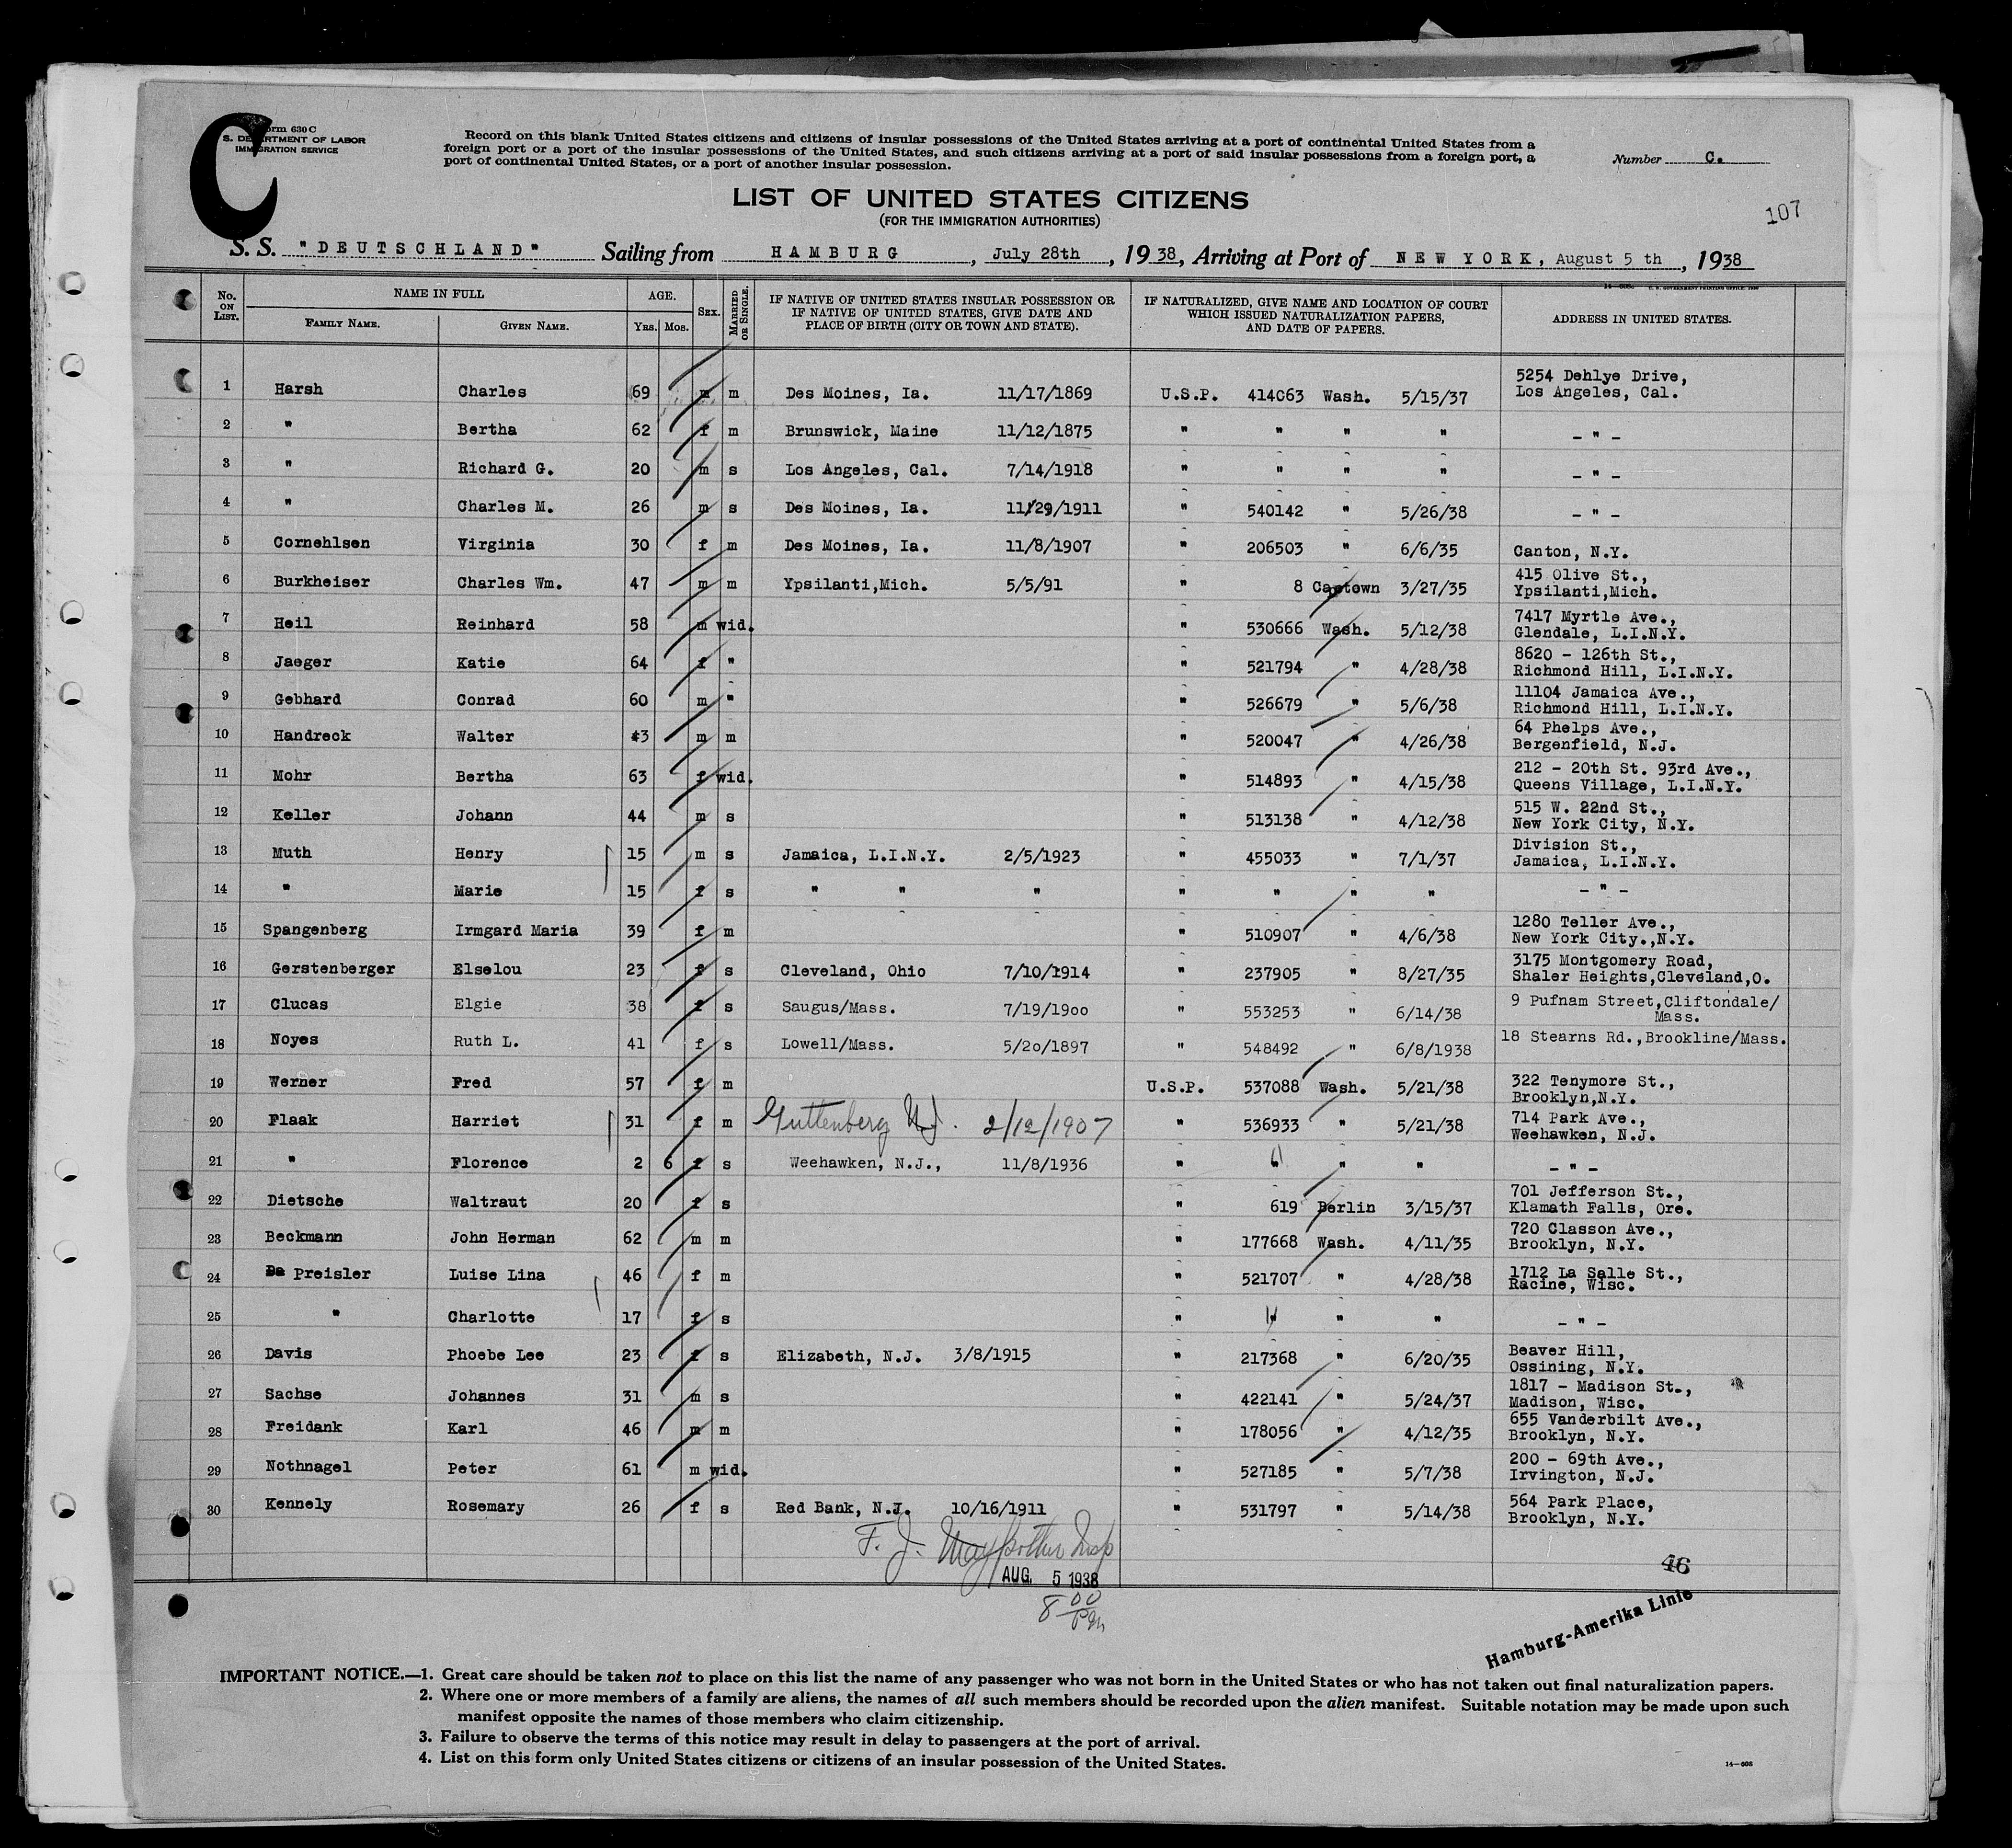 C
Form 630 C
S. DEPARTMENT OF LABOR
IMMIGRATION SERVICE
Record on this blank United States citizens and citizens of insular possessions of the United States arriving at a port of continental United States from a
foreign port or a port of the insular possessions of the United States, and such citizens arriving at a port of said insular possessions from a foreign port, a
port of continental United States, or a port of another insular possession.
Number C.
LIST OF UNITED STATES CITIZENS
(FOR THE IMMIGRATION AUTHORITIES)
107
S. S. "DEUTSCHLAND" Sailing from HAMBURG, July 28th, 1938, Arriving at Port of NEW YORK, August 5 th, 1938
No. ON LIST. NAME IN FULL FAMILY NAME. GIVEN NAME. AGE. YRS. MOS. SEX. MARRIED OR SINGLE. IF NATIVE OF UNITED STATES INSULAR POSSESSION OR IF NATIVE OF UNITED STATES, GIVE DATE AND PLACE OF BIRTH (CITY OR TOWN AND STATE). IF NATURALIZED, GIVE NAME AND LOCATION OF COURT WHICH ISSUED NATURALIZATION PAPERS, AND DATE OF PAPERS. ADDRESS IN UNITED STATES.
1 Harsh Charles 69 m m Des Moines, Ia. 11/17/1869 U.S.P. 414063 Wash. 5/15/37 5254 Dehlye Drive, Los Angeles, Cal.
2 " Bertha 62 f m Brunswick, Maine 11/12/1875 " " " " - " -
3 " Richard G. 20 m s Los Angeles, Cal. 7/14/1918 " " " " - " -
4 " Charles M. 26 m s Des Moines, Ia. 11/29/1911 " 540142 " 5/26/38 - " -
5 Cornehlsen Virginia 30 f m Des Moines, Ia. 11/8/1907 " 206503 " 6/6/35 Canton, N.Y.
6 Burkheiser Charles Wm. 47 m m Ypsilanti,Mich. 5/5/91 " 8 Captown 3/27/35 415 Olive St., Ypsilanti,Mich.
7 Heil Reinhard 58 m wid. " 530666 Wash. 5/12/38 7417 Myrtle Ave., Glendale, L.I.N.Y.
8 Jaeger Katie 64 f " " 521794 " 4/28/38 8620 - 126th St., Richmond Hill, L.I.N.Y.
9 Gebhard Conrad 60 m " " 526679 " 5/6/38 11104 Jamaica Ave., Richmond Hill, L.I.N.Y.
10 Handreck Walter 43 m m " 520047 " 4/26/38 64 Phelps Ave., Bergenfield, N.J.
11 Mohr Bertha 63 f wid. " 514893 " 4/15/38 212 - 20th St. 93rd Ave., Queens Village, L.I.N.Y.
12 Keller Johann 44 m s " 513138 " 4/12/38 515 W. 22nd St., New York City, N.Y.
13 Muth Henry 15 m s Jamaica, L.I.N.Y. 2/5/1923 " 455033 " 7/1/37 Division St., Jamaica, L.I.N.Y.
14 " Marie 15 f s " " " " " " " - " -
15 Spangenberg Irmgard Maria 39 f m " 510907 " 4/6/38 1280 Teller Ave., New York City.,N.Y.
16 Gerstenberger Elselou 23 f s Cleveland, Ohio 7/10/1914 " 237905 " 8/27/35 3175 Montgomery Road, Shaler Heights,Cleveland,O.
17 Clucas Elgie 38 f s Saugus/Mass. 7/19/1900 " 553253 " 6/14/38 9 Pufnam Street,Cliftondale/ Mass.
18 Noyes Ruth L. 41 f s Lowell/Mass. 5/20/1897 " 548492 " 6/8/1938 18 Stearns Rd.,Brookline/Mass.
19 Werner Fred 57 f m U.S.P. 537088 Wash. 5/21/38 322 Tenymore St., Brooklyn,N.Y.
20 Flaak Harriet 31 f m Guttenberg N.J. 2/12/1907 " 536933 " 5/21/38 714 Park Ave., Weehawken, N.J.
21 " Florence 2 6 f s Weehawken, N.J., 11/8/1936 " " " " - " -
22 Dietsche Waltraut 20 f s " 619 Berlin 3/15/37 701 Jefferson St., Klamath Falls, Ore.
23 Beckmann John Herman 62 m m " 177668 Wash. 4/11/35 720 Classon Ave., Brooklyn, N.Y.
24 De Preisler Luise Lina 46 f m " 521707 " 4/28/38 1712 La Salle St., Racine, Wisc.
25 " Charlotte 17 f s " " " " - " -
26 Davis Phoebe Lee 23 f s Elizabeth, N.J. 3/8/1915 " 217368 " 6/20/35 Beaver Hill, Ossining, N.Y.
27 Sachse Johannes 31 m s " 422141 " 5/24/37 1817 - Madison St., Madison, Wisc.
28 Freidank Karl 46 m m " 178056 " 4/12/35 655 Vanderbilt Ave., Brooklyn, N.Y.
29 Nothnagel Peter 61 m wid. " 527185 " 5/7/38 200 - 69th Ave., Irvington, N.J.
30 Kennely Rosemary 26 f s Red Bank, N.J. 10/16/1911 " 531797 " 5/14/38 564 Park Place, Brooklyn, N.Y.
F. J. Insp
46
AUG. 5 1938
8 00 Pm
Hamburg-Amerika Linie
IMPORTANT NOTICE.—1. Great care should be taken not to place on this list the name of any passenger who was not born in the United States or who has not taken out final naturalization papers.
2. Where one or more members of a family are aliens, the names of all such members should be recorded upon the alien manifest. Suitable notation may be made upon such
manifest opposite the names of those members who claim citizenship.
3. Failure to observe the terms of this notice may result in delay to passengers at the port of arrival.
4. List on this form only United States citizens or citizens of an insular possession of the United States.